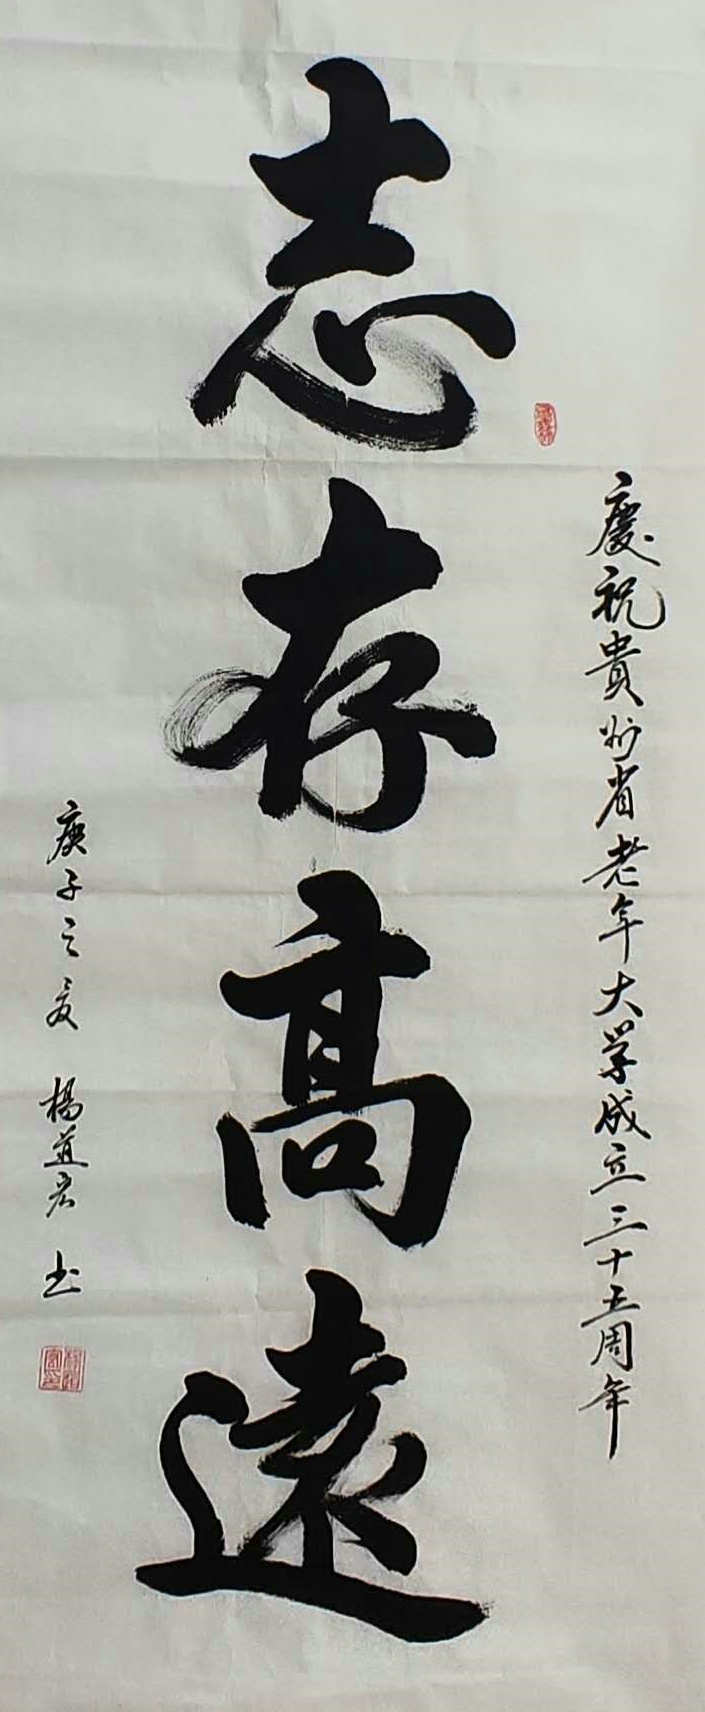 慶祝貴州省老年大学成立三十五周年
志存高遠
庚子之夏 楊道宏 书